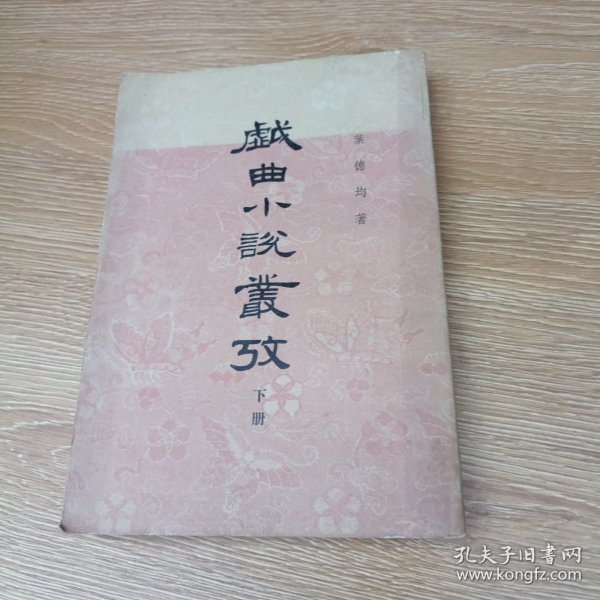 戲曲小說叢攷
下册
葉德均著
孔夫子旧书网
www.kongfz.com